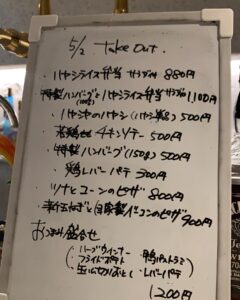 5/2 Take Out.
・ハヤシライス弁当 サラダ付 880円
・特製ハンバーグとハヤシライス弁当 サラダ付 1100円
(100g)
・ハヤシ 500円
・若鶏 チキンソテー 500円
・特製ハンバーグ(150g) 500円
・鶏レバーパテ 500円
・ツナとコーンのピザ 800円
・玉ねぎと自家製ベーコンのピザ 900円
おつまみ盛合せ
ハーブウィンナー ・鴨パストラミ
フライドポテト ・レバーパテ
1200円